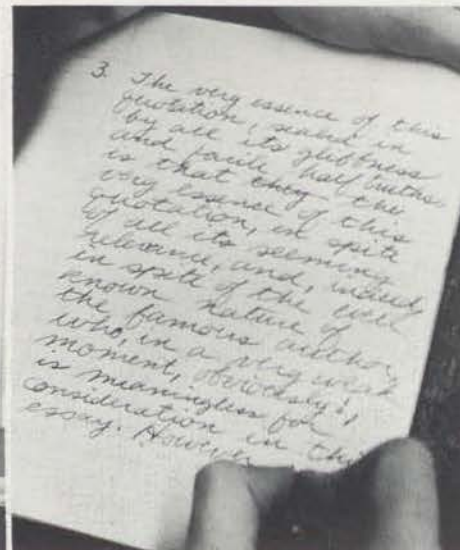 3. The very essence of this
quotation, seared in
by all its glibness
and facile half truths
is that they - the
very essence of this
quotation, in spite
of all its seeming
relevance, and, indeed,
in spite of the well
known nature of
the famous author
who, in a very weak
moment, obviously!,
is meaningless for
consideration in this
essay. However